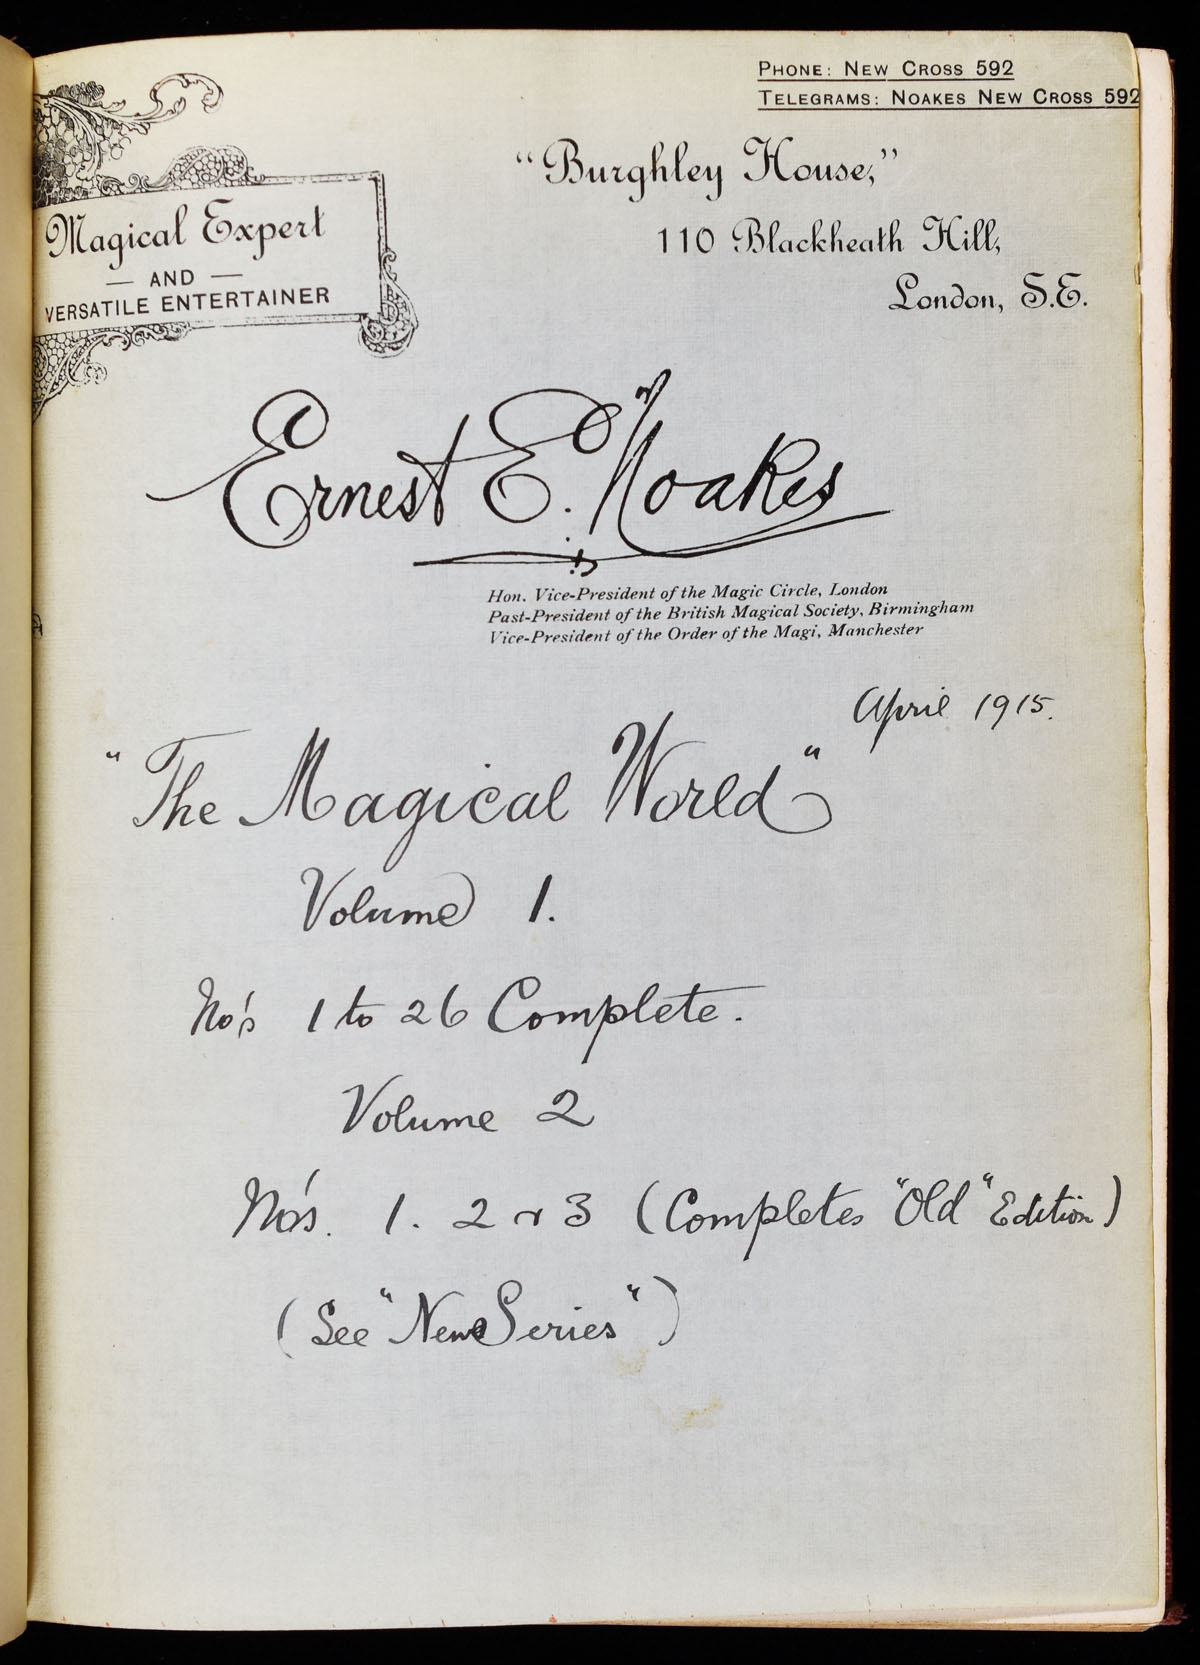 PHONE: NEW CROSS 592
TELEGRAMS: NOAKES NEW CROSS 592
"Burghley House,"
110 Blackheath Hill,
London, S.E.
Magical Expert
— AND —
VERSATILE ENTERTAINER
Ernest E. Noakes
Hon. Vice-President of the Magic Circle, London
Past-President of the British Magical Society, Birmingham
Vice-President of the Order of the Magi, Manchester
April 1915.
"The Magical World"
Volume 1.
No's 1 to 26 Complete.
Volume 2
No's. 1. 2 & 3 (Completes "Old" Edition)
(See "New Series")